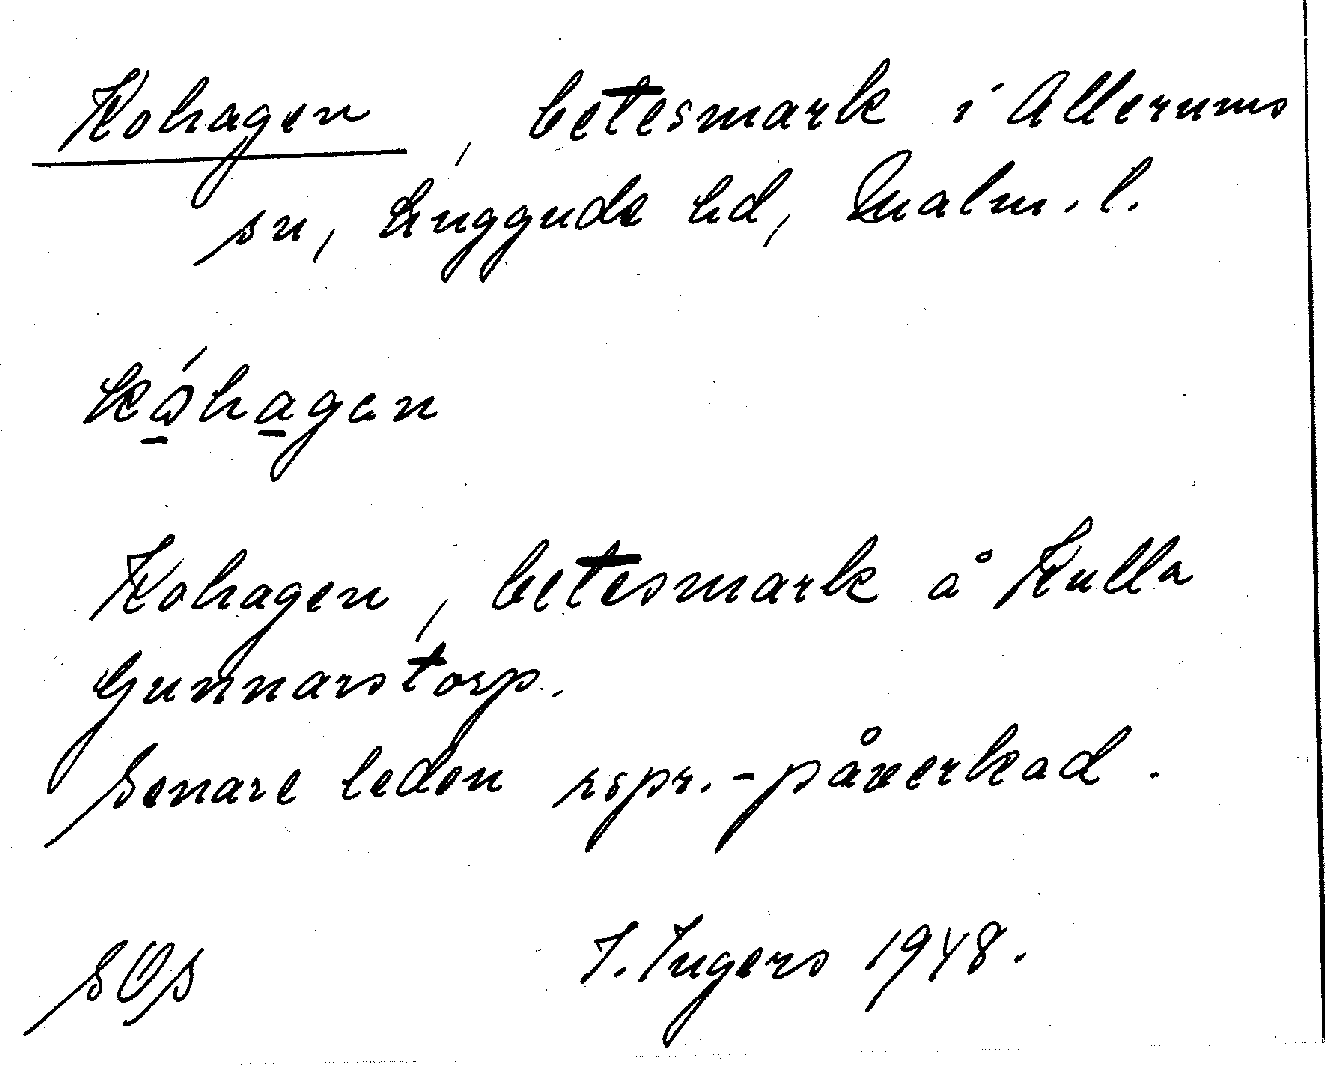 Kohagen, betesmark i Allerums
sn, Luggude hd, Malm. l.
kóhagen
Kohagen, betesmark å Kulla
Gunnarstorp.
Senare leden rspr.-påverkad.
SOS I. Ingers 1948.